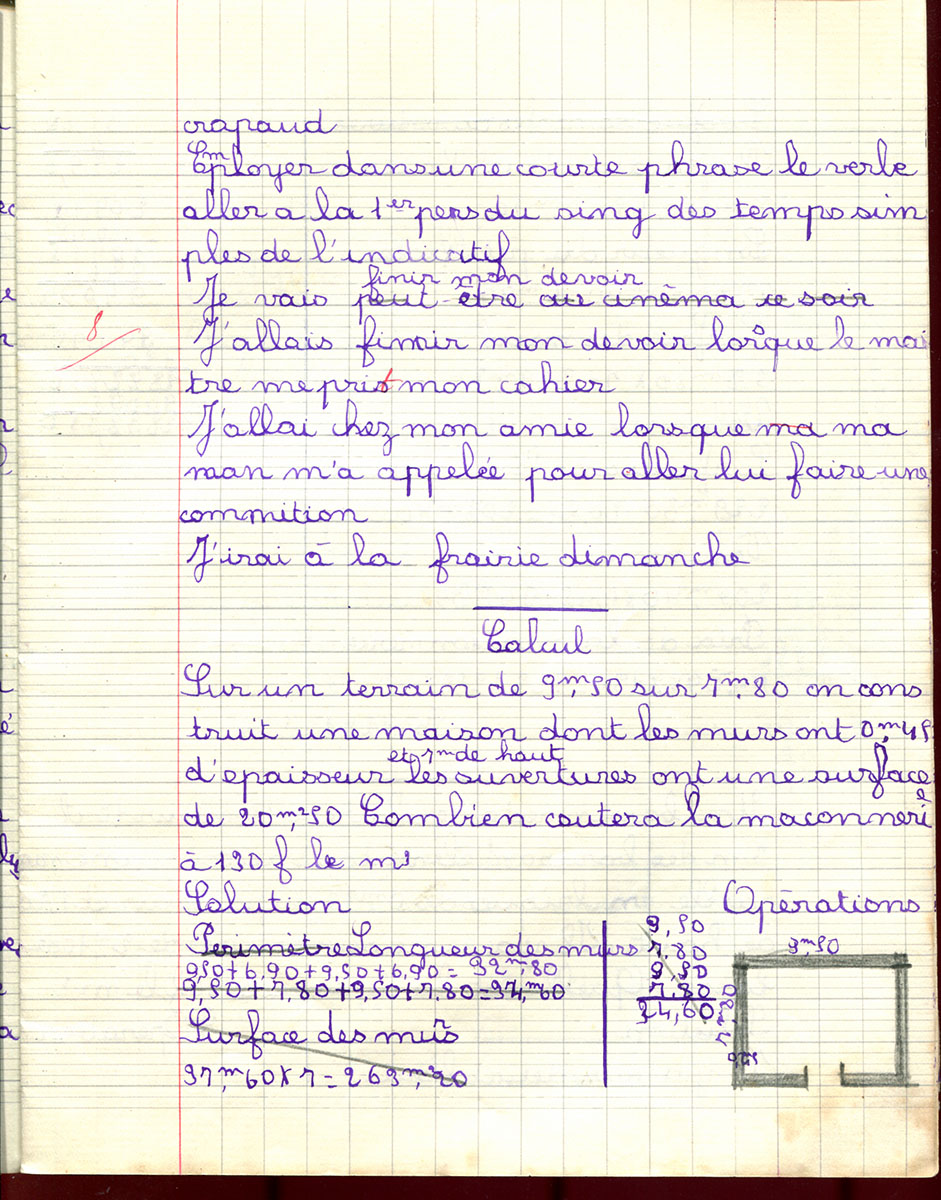 crapaud
Employer dans une courte phrase le verbe
aller a la 1er pers du sing des temps sim
ples de l'indicatif
finir mon devoir
Je vais peut être au cinéma ce soir
8
J'allais finir mon devoir lorsque le mai
tre me prit mon cahier
J'allai chez mon amie lorsque ma ma
man m'a appelée pour aller lui faire une
commition
J'irai à la frairie dimanche
Calcul
Sur un terrain de 9m,50 sur 7m,80 on cons
truit une maison dont les murs ont 0m,45
et 7m de haut
d'epaisseur les ouvertures ont une surface
de 20m²,50 Combien coutera la maconneri
e
à 130 f le m³
Solution
Opérations
Perimètre Longueur des murs
9,50+6,90+9,50+6,90= 32m,80
9,50+7,80+9,50+7,80=34,m60
Surface des murs
37,m60 x 7 = 263m,²20
9,50
7,80
9,50
7,80
34,60
9m,50
7m,80